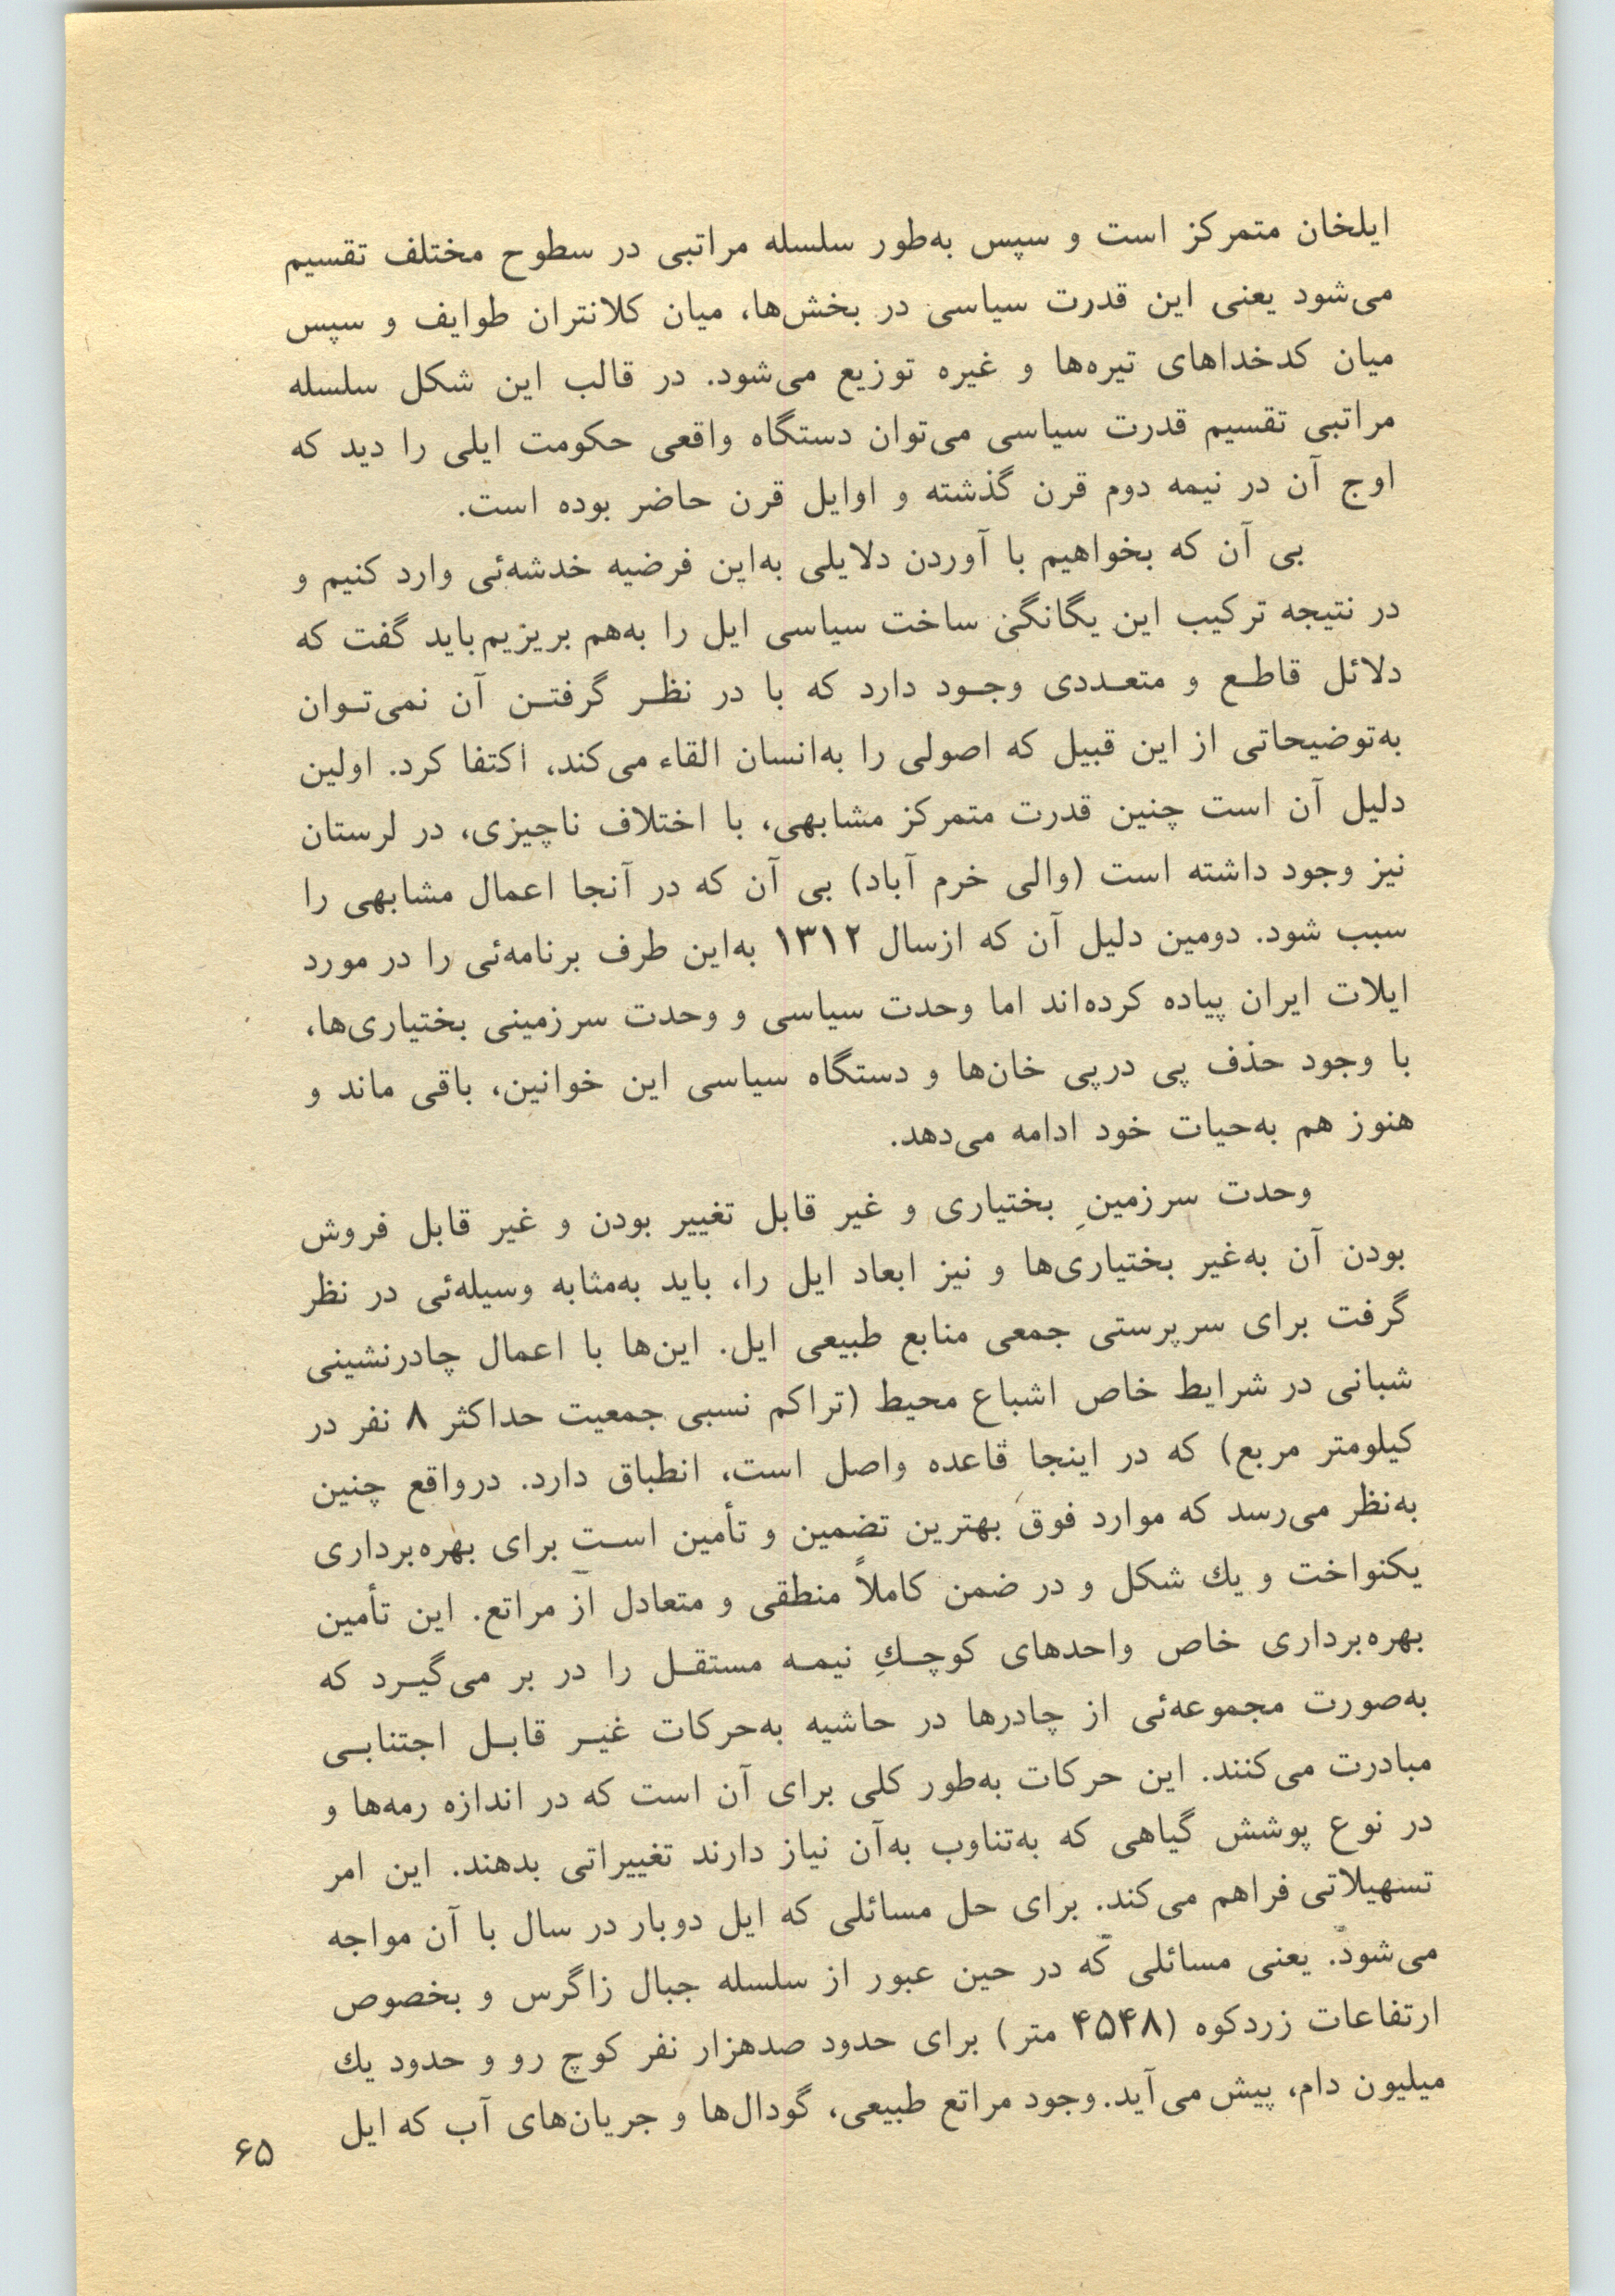 ایلخان متمرکز است و سپس به‌طور سلسله مراتبی در سطوح مختلف تقسیم
می‌شود یعنی این قدرت سیاسی در بخش‌ها، میان کلانتران طوایف و سپس
میان کدخداهای تیره‌ها و غیره توزیع می‌شود. در قالب این شکل سلسله
مراتبی تقسیم قدرت سیاسی می‌توان دستگاه واقعی حکومت ایلی را دید که
اوج آن در نیمه دوم قرن گذشته و اوایل قرن حاضر بوده است.
بی آن که بخواهیم با آوردن دلایلی به‌این فرضیه خدشه‌ئی وارد کنیم و
در نتیجه ترکیب این یگانگی ساخت سیاسی ایل را به‌هم بریزیم باید گفت که
دلائل قاطع و متعددی وجود دارد که با در نظر گرفتن آن نمی‌توان
به‌توضیحاتی از این قبیل که اصولی را به‌انسان القاء می‌کند، اکتفا کرد. اولین
دلیل آن است چنین قدرت متمرکز مشابهی، با اختلاف ناچیزی، در لرستان
نیز وجود داشته است (والی خرم آباد) بی آن که در آنجا اعمال مشابهی را
سبب شود. دومین دلیل آن که ازسال ۱۳۱۲ به‌این طرف برنامه‌ئی را در مورد
ایلات ایران پیاده کرده‌اند اما وحدت سیاسی و وحدت سرزمینی بختیاری‌ها،
با وجود حذف پی درپی خان‌ها و دستگاه سیاسی این خوانین، باقی ماند و
هنوز هم به‌حیات خود ادامه می‌دهد.
وحدت سرزمینِ بختیاری و غیر قابل تغییر بودن و غیر قابل فروش
بودن آن به‌غیر بختیاری‌ها و نیز ابعاد ایل را، باید به‌مثابه وسیله‌ئی در نظر
گرفت برای سرپرستی جمعی منابع طبیعی ایل. این‌ها با اعمال چادرنشینی
شبانی در شرایط خاص اشباع محیط (تراکم نسبی جمعیت حداکثر ۸ نفر در
کیلومتر مربع) که در اینجا قاعده واصل است، انطباق دارد. درواقع چنین
به‌نظر می‌رسد که موارد فوق بهترین تضمین و تأمین است برای بهره‌برداری
یکنواخت و یك شکل و در ضمن کاملاً منطقی و متعادل از مراتع. این تأمین
بهره‌برداری خاص واحدهای کوچكِ نیمه مستقل را در بر می‌گیرد که
به‌صورت مجموعه‌ئی از چادرها در حاشیه به‌حرکات غیر قابل اجتنابی
مبادرت می‌کنند. این حرکات به‌طور کلی برای آن است که در اندازه رمه‌ها و
در نوع پوشش گیاهی که به‌تناوب به‌آن نیاز دارند تغییراتی بدهند. این امر
تسهیلاتی فراهم می‌کند. برای حل مسائلی که ایل دوبار در سال با آن مواجه
می‌شود. یعنی مسائلی که در حین عبور از سلسله جبال زاگرس و بخصوص
ارتفاعات زردکوه (۴۵۴۸ متر) برای حدود صدهزار نفر کوچ رو و حدود یك
میلیون دام، پیش می‌آید. وجود مراتع طبیعی، گودال‌ها و جریان‌های آب که ایل
۶۵